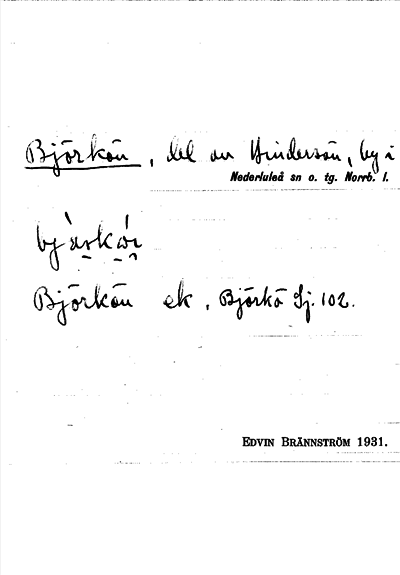 Björkön, del av Hindersön, by i
Nederluleå sn o. tg. Norrb. l.
Björkön ek, Björkö Sj. 102.
EDVIN BRÄNNSTRÖM 1931.